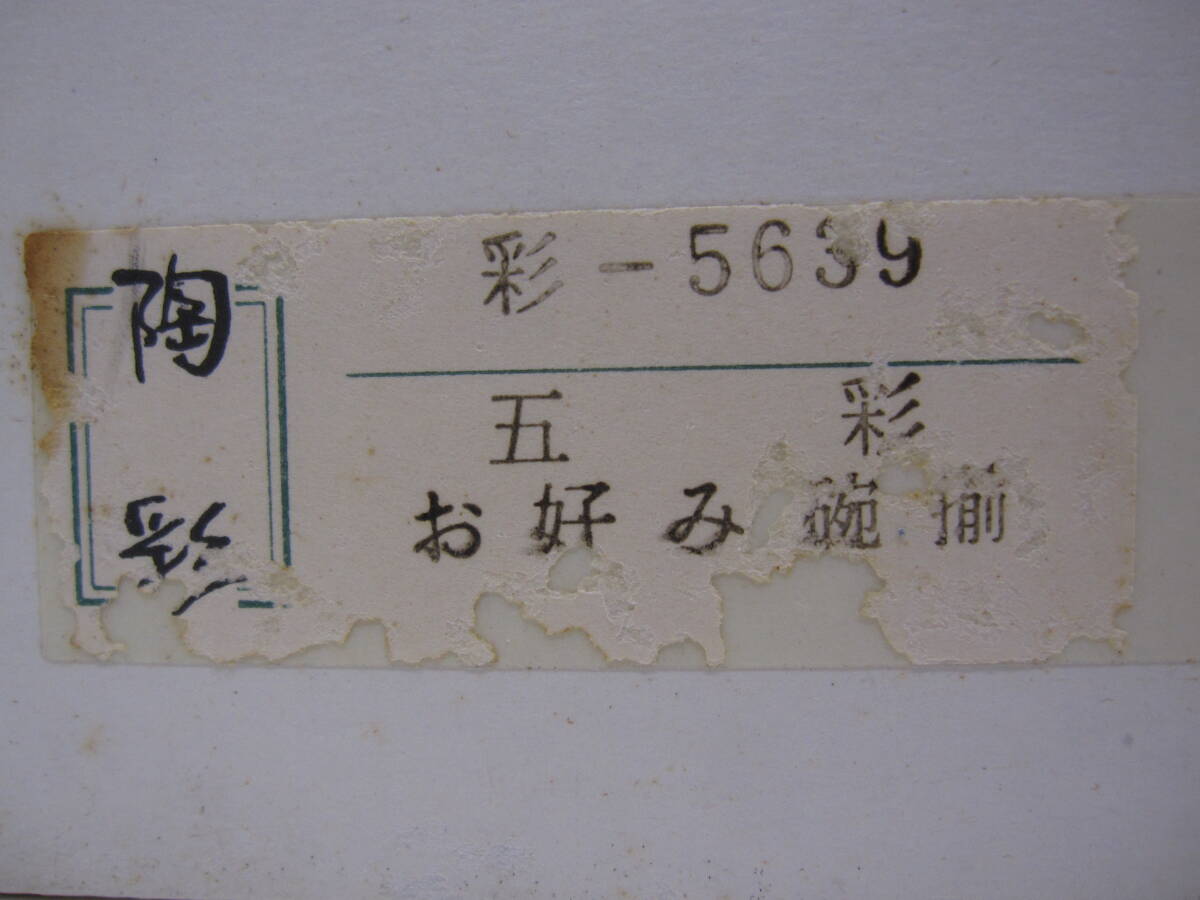 陶
彩-5639
五彩
お好み碗揃